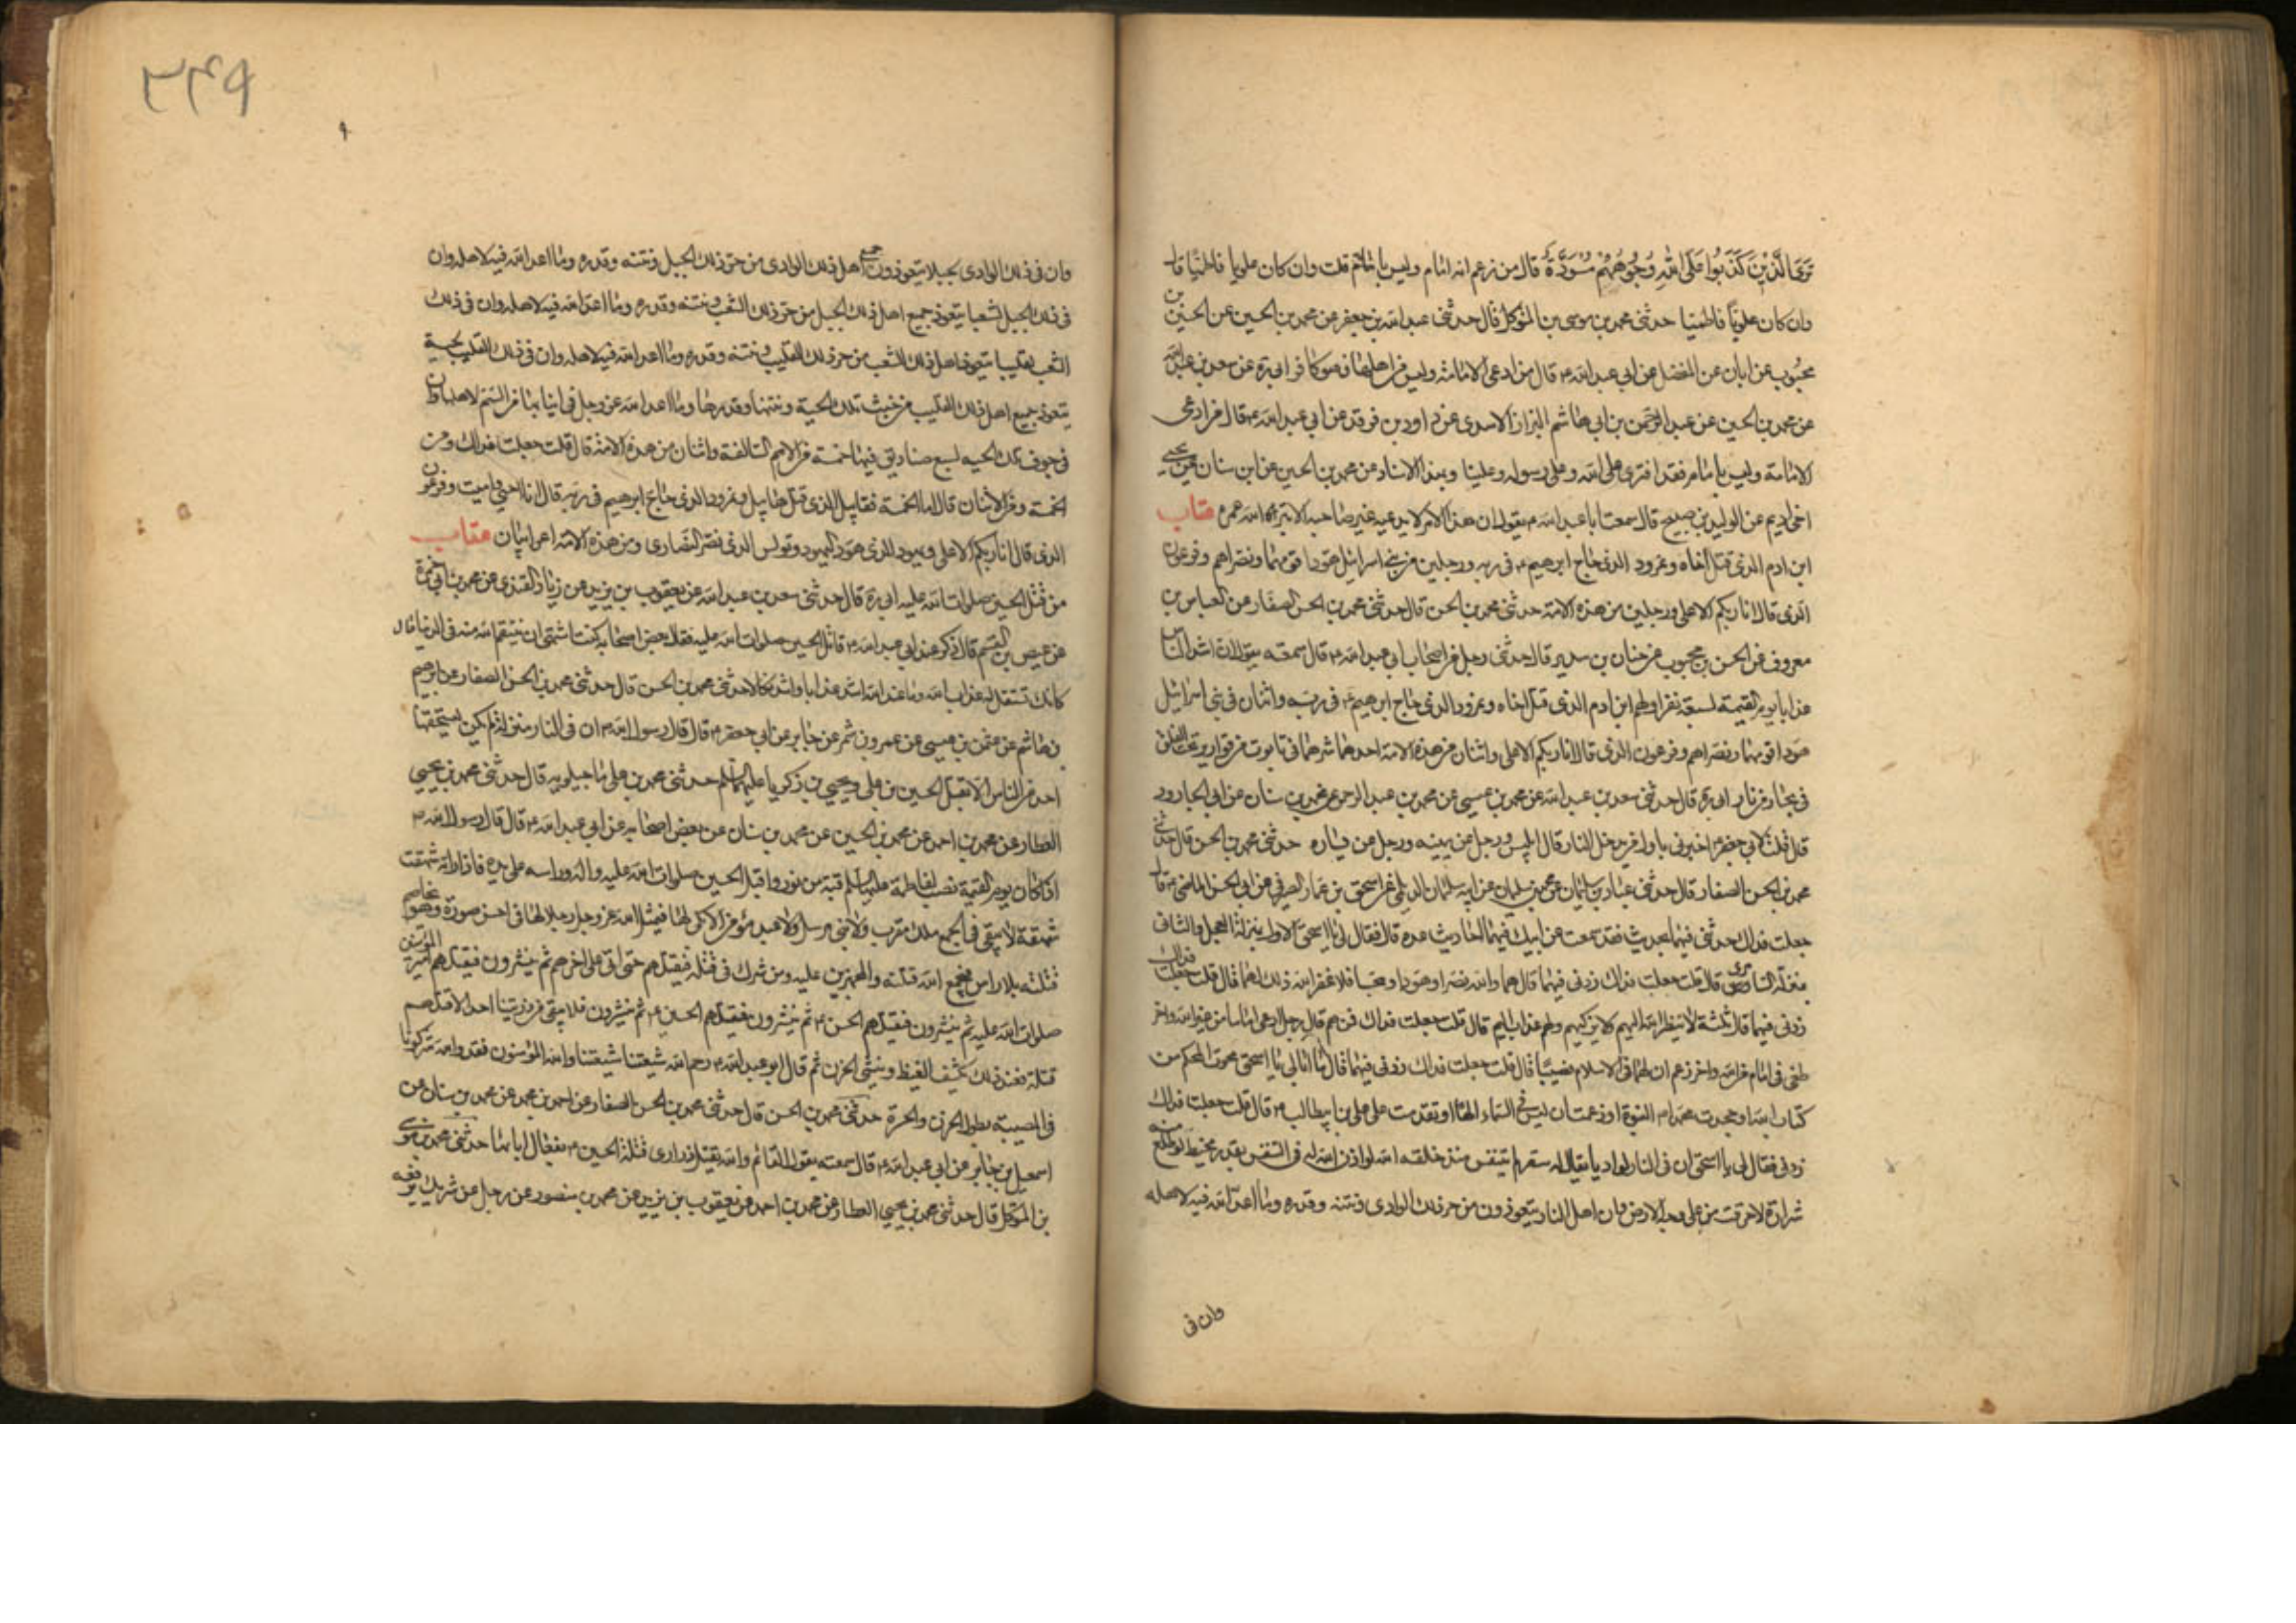 تَرَى الَّذِينَ كَذَبُوا عَلَى اللَّهِ وُجُوهُهُمْ مُسْوَدَّةٌ قال من زعم انه امام وليس بامام قلت وان كان علويا فاطميا قال
وان كان علويا فاطميا حدثنى محمد بن موسى بن المتوكل قال حدثنى عبد الله بن جعفر عن محمد بن الحسين عن الحسن بن
محبوب عن ابان عن المفضل عن ابي عبد الله ع قال من ادعى الامامة وليس من اهلها فهو كافر ابي ره عن سعد بن عبد الله
عن محمد بن الحسين عن عبد الرحمن بن ابي هاشم البزاز الاسدى عن داود بن فرقد عن ابي عبد الله ع قال من ادعى
الامامة وليس بامام فقد افترى على الله وعلى رسوله وعلينا وبهذا الاسناد عن محمد بن الحسين عن ابن سنان عن يحيى
اخى اديم عن الوليد بن صبيح قال سمعت ابا عبد الله ع يقول ان هذا الامر لا يدعيه غير صاحبه الا بتر الله عمره عقاب
ابن ادم الذى قتل اخاه ونمرود الذى حاج ابرهيم ع فى ربه ورجلين من بنى اسرائيل هودا قومهما ونصراهم وفرعون
الذى قال انا ربكم الاعلى ورجلين من هذه الامة حدثنى محمد بن الحسن قال حدثنى محمد بن الحسن الصفار عن العباس بن
معروف عن الحسن بن محبوب عن حنان بن سدير قال حدثنى رجل من اصحاب ابي عبد الله ع قال سمعته يقول ان اشد الناس
عذابا يوم القيمة لسبعة نفر اولهم ابن ادم الذى قتل اخاه ونمرود الذى حاج ابرهيم ع فى ربه واثنان فى بنى اسرائيل
هودا قومهما ونصراهم وفرعون الذى قال انا ربكم الاعلى واثنان من هذه الامة احدهما شرهما فى تابوت من قوارير تحت الفلق
فى بحار من نار ابي ره قال حدثنى سعد بن عبد الله عن محمد بن عيسى عن محمد بن عبد الرحمن عن محمد بن سنان عن ابي الجارود
قال قلت لابي جعفر ع اخبرنى باول من يدخل النار قال ابليس ورجل عن يمينه ورجل عن يساره حدثنى محمد بن الحسن قال حدثنى
محمد بن الحسن الصفار قال حدثنى عباد بن سليمان عن محمد بن سليمان عن ابيه سليمان الديلمى عن اسحق بن عمار الصيرفى عن ابي الحسن الماضى ع قال
جعلت فداك حدثنى فيهما بحديث فقد سمعت من ابيك فيهما احاديث عده قال فقال لى يا اسحق الاول بمنزلة العجل والثانى
بمنزلة السامرى قال قلت جعلت فداك زدنى فيهما قال هما والله نصرا وهودا ومجسا فلا غفر الله ذلك لهما قال قلت جعلت فداك
زدنى فيهما قال ثلثة لا ينظر الله اليهم ولا يزكيهم ولهم عذاب اليم قال قلت جعلت فداك فمن هم قال رجل ادعى اماما من غير الله واخر
طعن فى امام من الله واخر زعم ان لهما فى الاسلام نصيبا قال قلت جعلت فداك زدنى فيهما قال ما ابالى يا اسحق محوت المحكم من
كتاب الله او جحدت محمدا ص النبوة او زعمت ان ليس فى السماء الها او تقدمت على على بن ابيطالب ع قال قلت جعلت فداك
زدنى فقال لى يا اسحق ان فى النار لواديا يقال له سقر لم يتنفس منذ خلقه الله لو اذن الله له فى التنفس بقدر مخيط
شرارة لاحرقت من على وجه الارض وان اهل النار يتعوذون من حر ذلك الوادى ونتنه وقذره وما اعد الله فيه لاهله
وان فى
۲۴۹
وان فى ذلك الوادى لجبلا يتعوذون جميع اهل ذلك الوادى من حر ذلك الجبل ونتنه وقذره وما اعد الله فيه لاهله وان
فى ذلك الجبل لشعبا يتعوذ جميع اهل ذلك الجبل من حر ذلك الشعب ونتنه وقذره وما اعد الله فيه لاهله وان فى ذلك
الشعب لقليبا يتعوذ اهل ذلك الشعب من حر ذلك القليب ونتنه وقذره وما اعد الله فيه لاهله وان فى ذلك القليب لحية
يتعوذ جميع اهل ذلك القليب من خبث تلك الحية ونتنها وقذرها وما اعد الله عز وجل فى انيابها من السم لاهلها وان
فى جوف تلك الحيه لسبع صناديق فيها خمسة من الامم السالفة واثنان من هذه الامة قال قلت جعلت فداك ومن
الخمسة ومن الاثنان قال اما الخمسة فقابيل الذى قتل هابيل ونمرود الذى حاج ابرهيم فى ربه قال انا احيى واميت وفرعون
الذى قال انا ربكم الاعلى ويهود الذى هود اليهود وبولس الذى نصر النصارى ومن هذه الامة اعرابيان عقاب
من قتل الحسين صلوات الله عليه ابي ره قال حدثنى سعد بن عبد الله عن يعقوب بن يزيد عن زياد القندى عن محمد بن ابي حمزة
عن عيص بن القسم قال ذكر عند ابي عبد الله ع قاتل الحسين صلوات الله عليه فقال بعض اصحابه كنت اشتهى ان ينتقم الله منه فى الدنيا قال
كانك تستقل له عذاب الله وما عند الله اشد عذابا واشد نكالا حدثنى محمد بن الحسن قال حدثنى محمد بن الحسن الصفار عن ابرهيم
بن هاشم عن عثمن بن عيسى عن عمرو بن شمر عن جابر عن ابي جعفر ع قال قال رسول الله ص ان فى النار منزلة لم يكن يستحقها
احد من الناس الا بقتل الحسين بن على ويحيى بن زكريا عليهما السلم حدثنى محمد بن على ماجيلويه قال حدثنى محمد بن يحيى
العطار عن محمد بن احمد عن محمد بن الحسين عن محمد بن سنان عن بعض اصحابه عن ابي عبد الله ع قال قال رسول الله ص
اذا كان يوم القيمة نصب لفاطمة عليها السلم قبة من نور واقبل الحسين صلوات الله عليه واله وراسه على يده فاذا راته شهقت
شهقة لا يبقى فى الجمع ملك مقرب ولا نبى مرسل ولا عبد مؤمن الا بكى لها فيمثل الله عز وجل رجلا لها فى احسن صورة وهو يخاصم
قتلته بلا راس فيجمع الله قتلته والمجهزين عليه ومن شرك فى قتله فيقتلهم حتى اتى على اخرهم ثم ينشرون فيقتلهم امير المؤمنين
صلوات الله عليه ثم ينشرون فيقتلهم الحسن ع ثم ينشرون فيقتلهم الحسين ع ثم ينشرون فلا يبقى من ذريتنا احد الا قتلهم
قتلة فعند ذلك يكشف الغيظ وينسى الحزن ثم قال ابو عبد الله ع رحم الله شيعتنا شيعتنا والله المؤمنون فقد والله شركونا
فى المصيبة بطول الحزن والحسرة حدثنى محمد بن الحسن قال حدثنى محمد بن الحسن الصفار عن احمد بن محمد عن محمد بن سنان عن
اسمعيل بن جابر عن ابي عبد الله ع قال سمعته يقول القائم والله يقتل ذرارى قتلة الحسين ع بفعال ابائها حدثنى محمد بن موسى
بن المتوكل قال حدثنى محمد بن يحيى العطار عن محمد بن احمد عن يعقوب بن يزيد عن محمد بن منصور عن رجل عن شريك يرفعه